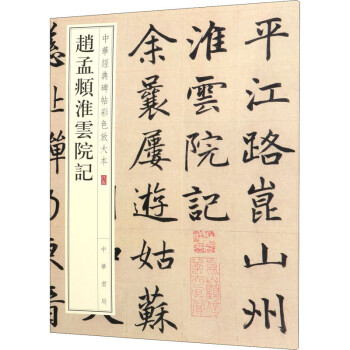 平江路崑山州
淮雲院記
余曩屢游姑蘇
慈上禪乃夾音
中華經典碑帖彩色放大本
趙孟頫淮雲院記
中華書局